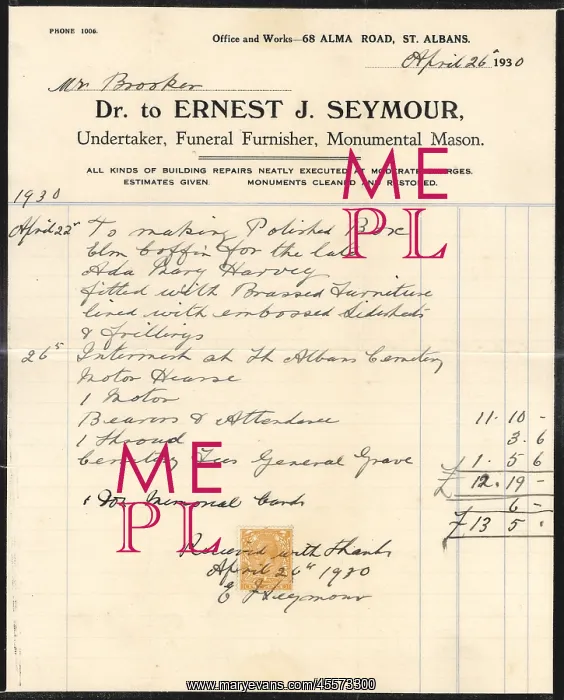 PHONE 1006.
Office and Works—68 ALMA ROAD, ST. ALBANS.
April 26" 1930
Mr Brooker
Dr. to ERNEST J. SEYMOUR,
Undertaker, Funeral Furnisher, Monumental Mason.
ALL KINDS OF BUILDING REPAIRS NEATLY EXECUTED AT MODERATE CHARGES.
ESTIMATES GIVEN. MONUMENTS CLEANED AND RESTORED.
ME
PL
1930
April 22" To making Polished Boxe
Elm Coffin for the late
Ada Mary Harvey
fitted with Brassed Furniture
lined with embossed Sidesheets
& frillings
26" Interment at St Albans Cemetery
Motor Hearse
1 Motor
Bearers & Attendance 11. 10 -
1 Shroud 3. 6
Cemetery Fees General Grave 1. 5 6
£ 12. 19 -
1 Doz Memorial Cards 6 -
£ 13 5 .
ME
PL
Received with thanks
April 26" 1930
E J Seymour
www.maryevans.com/45573300